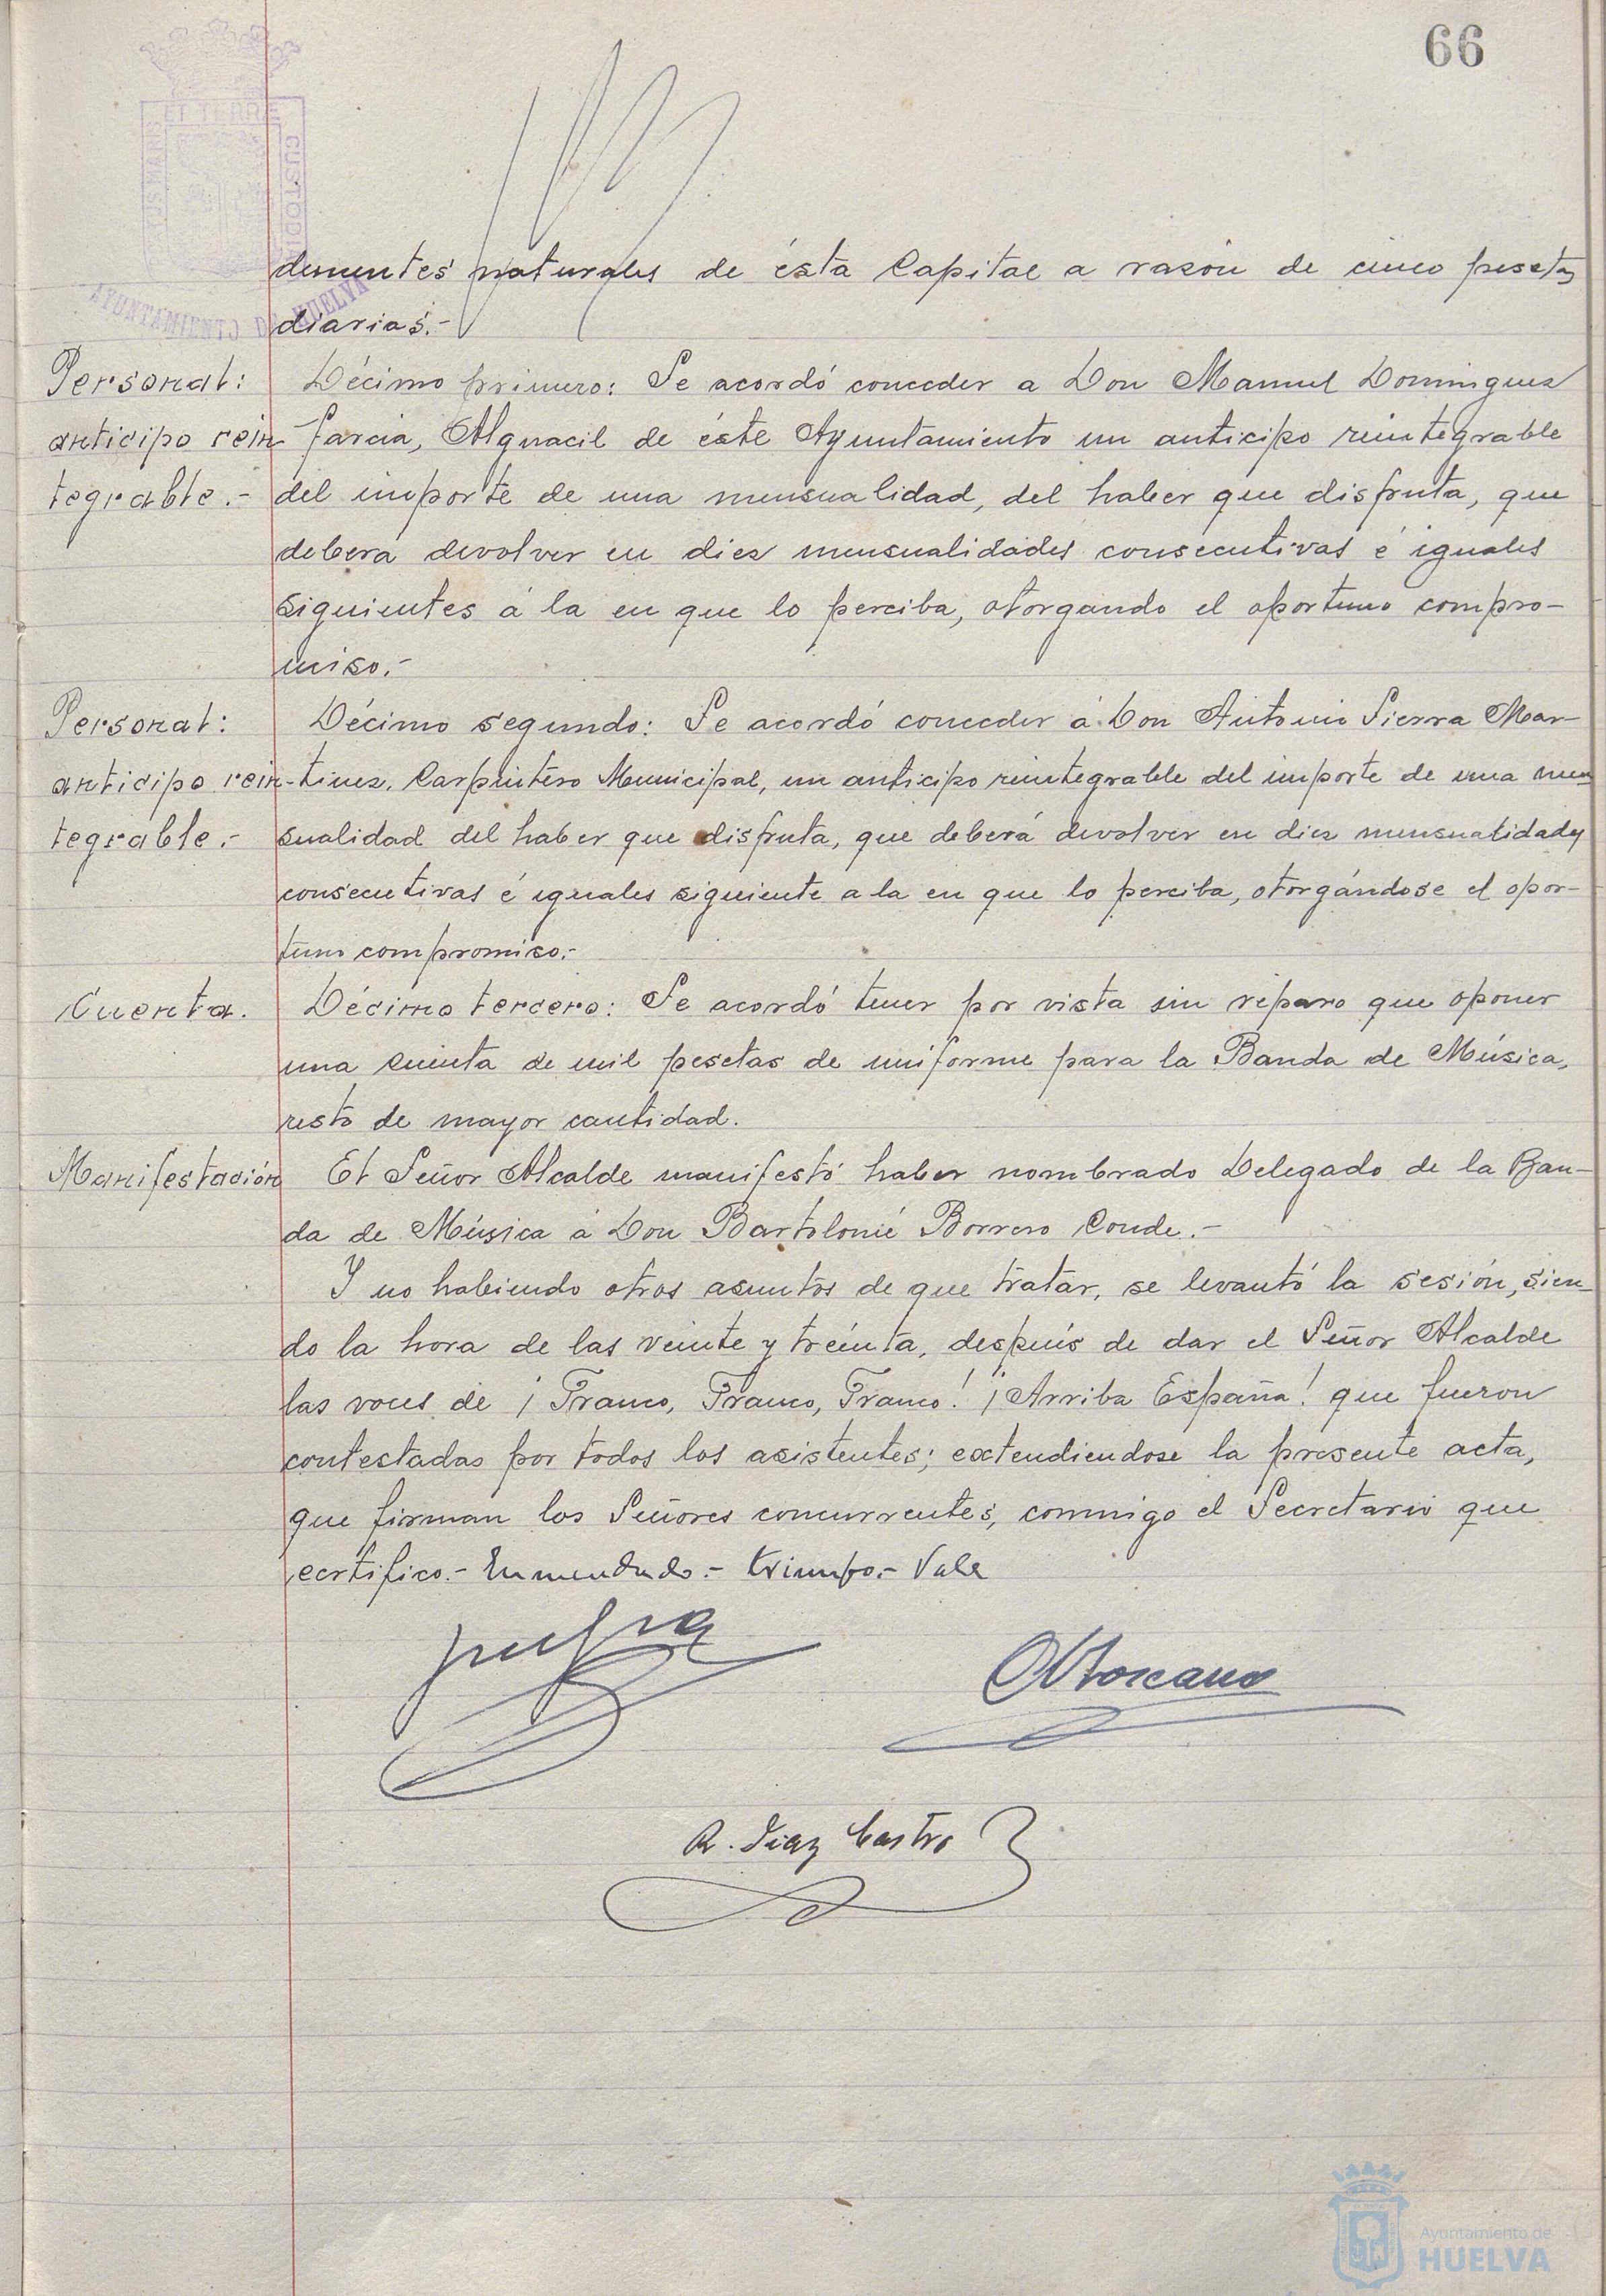 66
ET TERRÆ
CUSTODIA
AYUNTAMIENTO DE HUELVA
dementes naturales de ésta Capital a razón de cinco pesetas
diarias.-
Personal:
anticipo rein
tegrable.-
Décimo primero: Se acordó conceder a Don Manuel Dominguez
Garcia, Alguacil de éste Ayuntamiento un anticipo reintegrable
del importe de una mensualidad, del haber que disfruta, que
deberá devolver en diez mensualidades consecutivas é iguales
siguientes á la en que lo perciba, otorgando el oportuno compro-
miso.-
Personal:
anticipo rein-
tegrable.-
Décimo segundo: Se acordó conceder á Don Antonio Sierra Mar-
tinez, Carpintero Municipal, un anticipo reintegrable del importe de una men-
sualidad del haber que disfruta, que deberá devolver en diez mensualidades
consecutivas é iguales siguiente a la en que lo perciba, otorgándose el opor-
tuno compromiso.-
Cuenta.
Décimo tercero: Se acordó tener por vista sin reparo que oponer
una cuenta de mil pesetas de uniforme para la Banda de Música,
resto de mayor cantidad.
Manifestación
El Señor Alcalde manifestó haber nombrado Delegado de la Ban-
da de Música á Don Bartolomé Borrero Conde.-
Y no habiendo otros asuntos de que tratar, se levantó la sesión, sien-
do la hora de las veinte y treinta, después de dar el Señor Alcalde
las voces de ¡Franco, Franco, Franco! ¡Arriba España! que fueron
contestadas por todos los asistentes; extendiendose la presente acta,
que firman los Señores concurrentes, conmigo el Secretario que
certifico.- Enmendado.- triunfo.- Vale
R. Diaz Castro
Ayuntamiento de
HUELVA